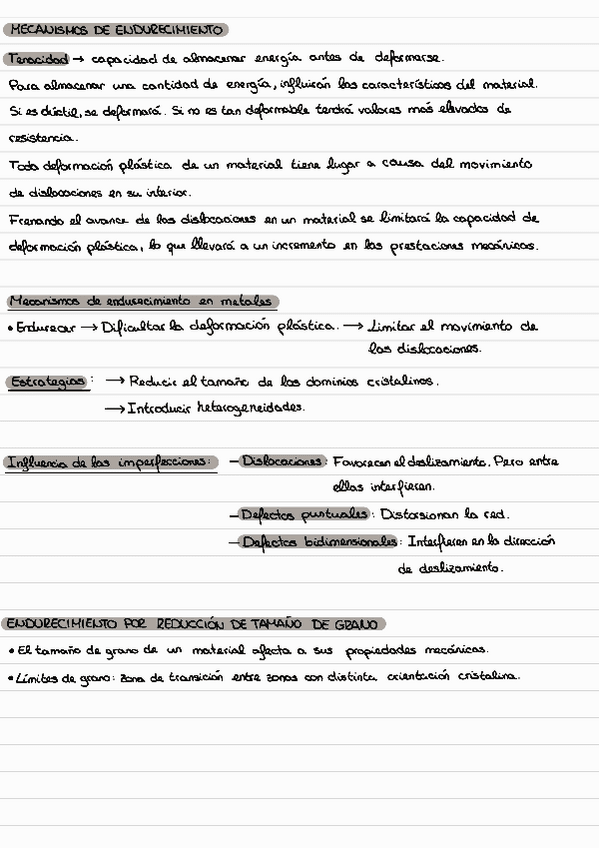 MECANISMOS DE ENDURECIMIENTO
Tenacidad → capacidad de almacenar energía antes de deformarse.
Para almacenar una cantidad de energía, influirán las características del material.
Si es dúctil, se deformará. Si no es tan deformable tendrá valores más elevados de
resistencia.
Toda deformación plástica de un material tiene lugar a causa del movimiento
de dislocaciones en su interior.
Frenando el avance de las dislocaciones en un material se limitará la capacidad de
deformación plástica, lo que llevará a un incremento en las prestaciones mecánicas.
Mecanismos de endurecimiento en metales
• Endurecer → Dificultar la deformación plástica. → Limitar el movimiento de
las dislocaciones.
Estrategias: → Reducir el tamaño de los dominios cristalinos.
→ Introducir heterogeneidades.
Influencia de las imperfecciones: – Dislocaciones: Favorecen el deslizamiento. Pero entre
ellas interfieren.
– Defectos puntuales: Distorsionan la red.
– Defectos bidimensionales: Interfieren en la dirección
de deslizamiento.
ENDURECIMIENTO POR REDUCCIÓN DE TAMAÑO DE GRANO
• El tamaño de grano de un material afecta a sus propiedades mecánicas.
• Límites de grano: zona de transición entre zonas con distinta orientación cristalina.